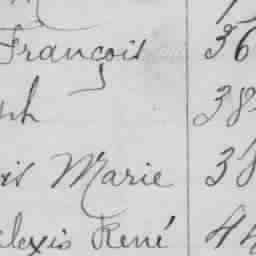 François 36
ph 38
is Marie 38
lexis René 44